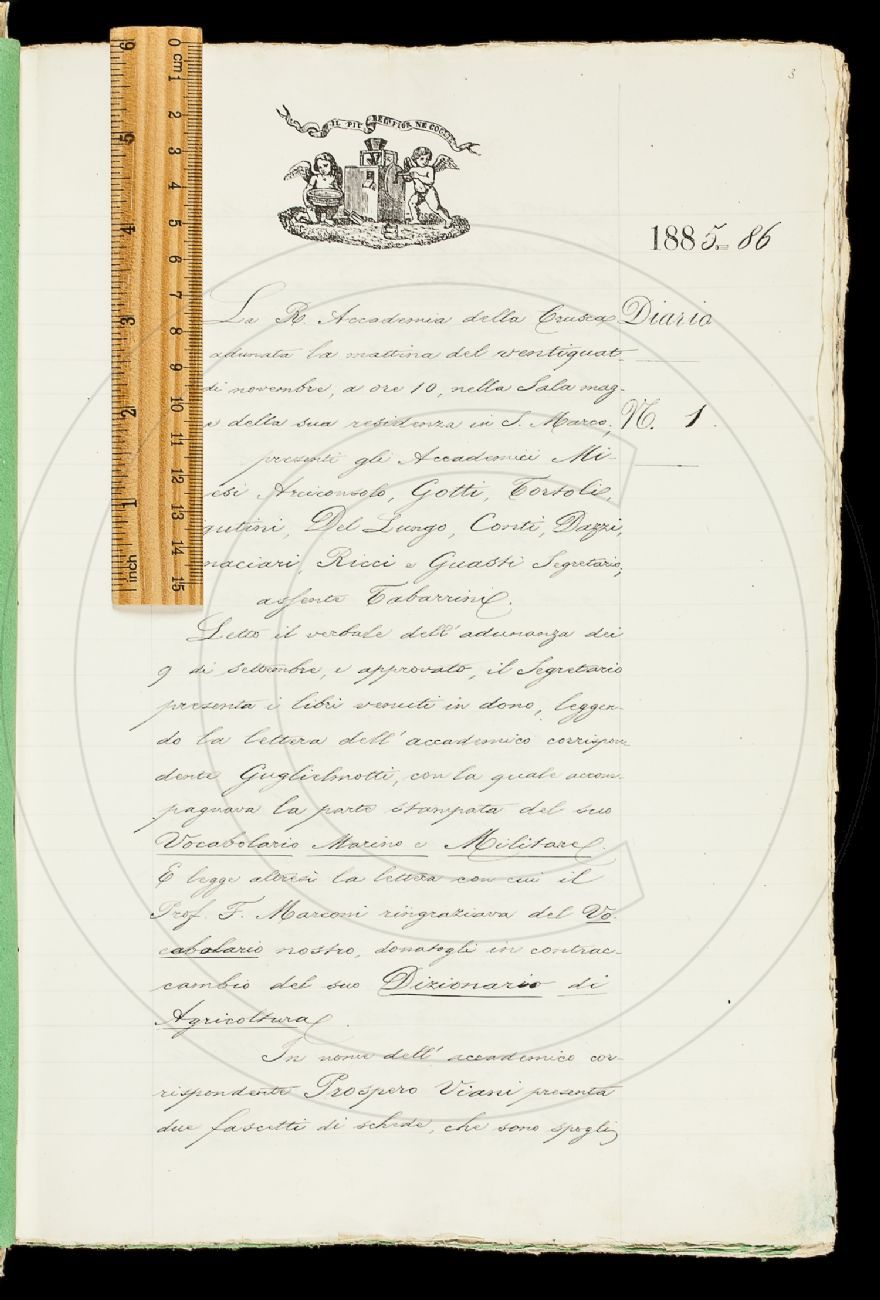 3
IL PIÙ BEL FIOR NE COGLIE
1885-86
La R. Accademia della Crusca Diario
adunata la mattina del ventiquat-
di novembre, a ore 10, nella Sala mag-
e della sua residenza in S. Marco; N. 1.
presenti gli Accademici Mi-
esi Arciconsolo, Gotti, Tortoli,
gutini, Del Lungo, Conti, Dazzi,
naciari, Ricci e Guasti Segretario;
assente Tabarrini.
Letto il verbale dell'adunanza dei
9 di settembre, e approvato, il Segretario
presenta i libri venuti in dono, leggen-
do la lettera dell'accademico corrispon-
dente Guglielmotti, con la quale accom-
pagnava la parte stampata del suo
Vocabolario Marino e Militare.
E legge altresì la lettera con cui il
Prof. F. Marconi ringraziava del Vo-
cabolario nostro, donatogli in contrac-
cambio del suo Dizionario di
Agricoltura.
In nome dell'accademico cor-
rispondente Prospero Viani presenta
due fascetti di schede, che sono spogli
0 cm 1 2 3 4 5 6 7 8 9 10 11 12 13 14 15
inch 1 2 3 4 5 6